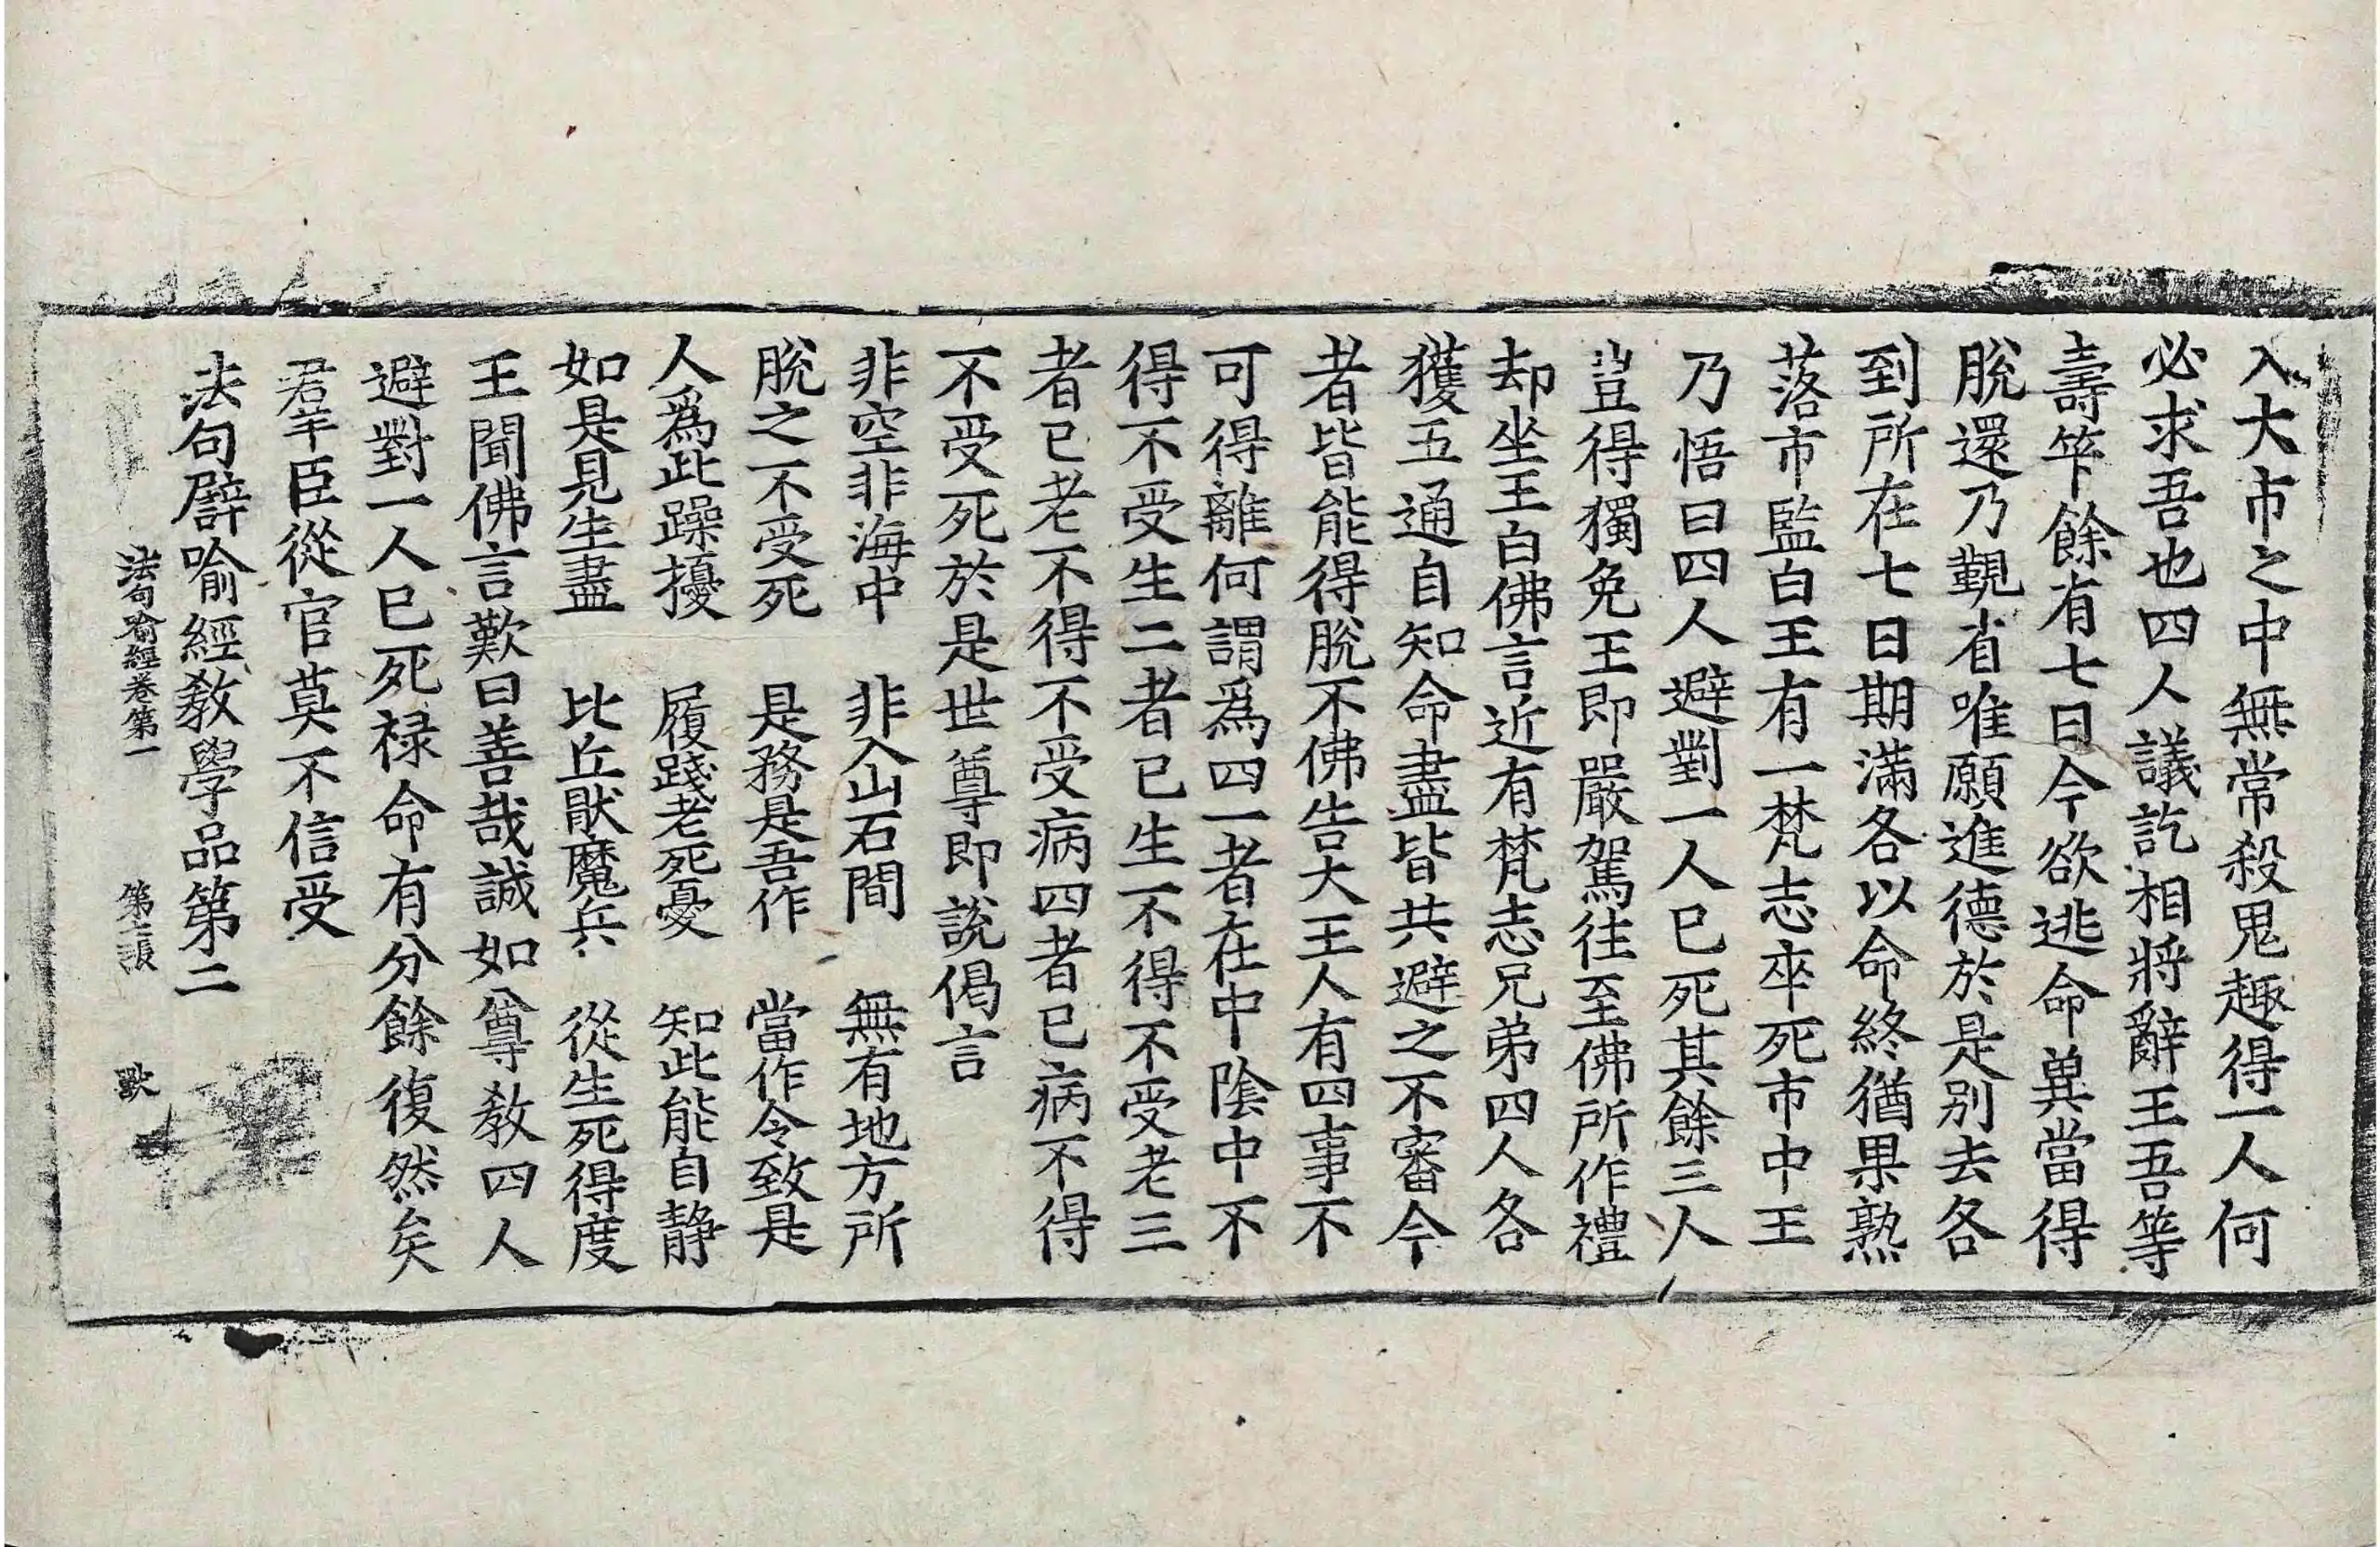 入大市之中無常殺鬼趣得一人何
必求吾也四人議訖相將辭王吾等
壽筭餘有七日今欲逃命兾當得
脫還乃覲省唯願進德於是別去各
到所在七日期滿各以命終猶果熟
落市監白王有一梵志卒死市中王
乃悟曰四人避對一人已死其餘三人
豈得獨免王即嚴駕往至佛所作禮
却坐王白佛言近有梵志兄弟四人各
獲五通自知命盡皆共避之不審今
者皆能得脫不佛告大王人有四事不
可得離何謂爲四一者在中陰中不
得不受生二者已生不得不受老三
者已老不得不受病四者已病不得
不受死於是世尊即說偈言
非空非海中　非入山石間　無有地方所
脫之不受死　是務是吾作　當作令致是
人爲此躁擾　履踐老死憂　知此能自静
如是見生盡　比丘猒魔兵　從生死得度
王聞佛言歎曰善哉誠如尊教四人
避對一人已死禄命有分餘復然矣
羣臣從官莫不信受
法句譬喻經教學品第二
法句喻經卷第一　第張